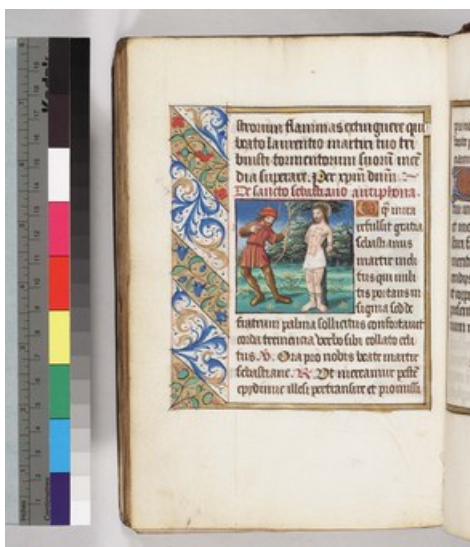 strorum flammas extinguere qui
beato laurentio martiri tuo tri
buisti tormentorum suorum incē
dia superare. Per xp̄m dnm̄.
De sancto sebastiano antiphona.
O q̄ mira
refulsit gratia
sebastianus
martir incli
tus qui mili
tis portans in
signia sed de
fratrum palma sollicitus confortauit
corda tremencia verbo sibi collato celi
tus. V. Ora pro nobis beate martir
sebastiane. R. Vt mereamur pestē
epydimie illesi pertransire et promissi
Kodak